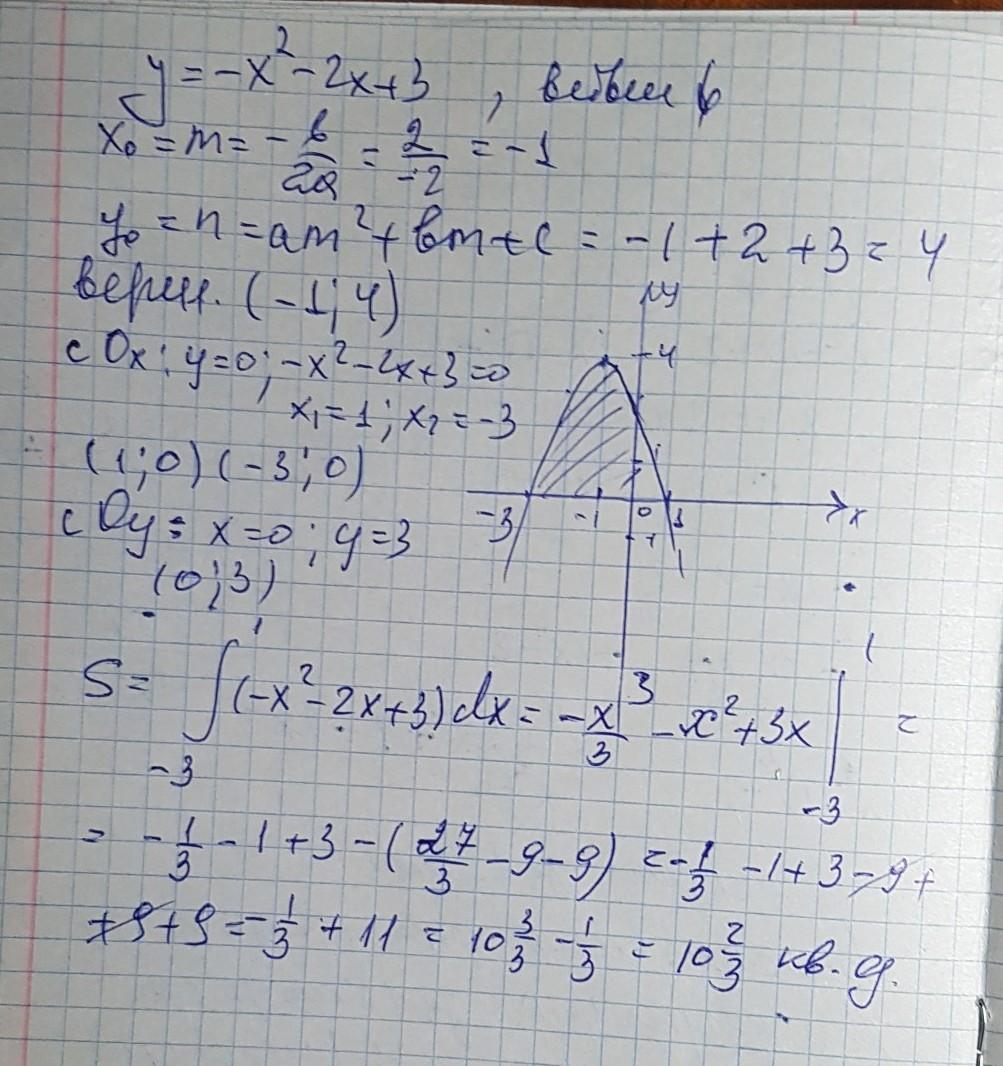 y = -x² - 2x + 3 , ветви ↓
x₀ = m = -в/2a = 2/-2 = -1
y₀ = n = am² + вm + c = -1 + 2 + 3 = 4
верш. (-1; 4)
y
с Ox: y=0; -x² - 2x + 3 = 0
4
x₁ = 1; x₂ = -3
(1; 0) (-3; 0)
-3 -1 0 1 x
с Oy: x=0; y=3
(0; 3)
S = ∫₋₃¹ (-x² - 2x + 3) dx = -x³/3 - x² + 3x |₋₃¹ =
= -1/3 - 1 + 3 - (27/3 - 9 - 9) = -1/3 - 1 + 3 - 9 +
+ 9 + 9 = -1/3 + 11 = 10 3/3 - 1/3 = 10 2/3 кв. ед.